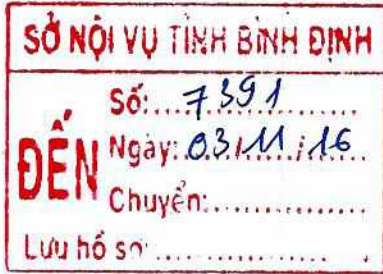 SỞ NỘI VỤ TỈNH BÌNH ĐỊNH
ĐẾN
Số: 7391
Ngày: 03/11/16
Chuyển:
Lưu hồ sơ